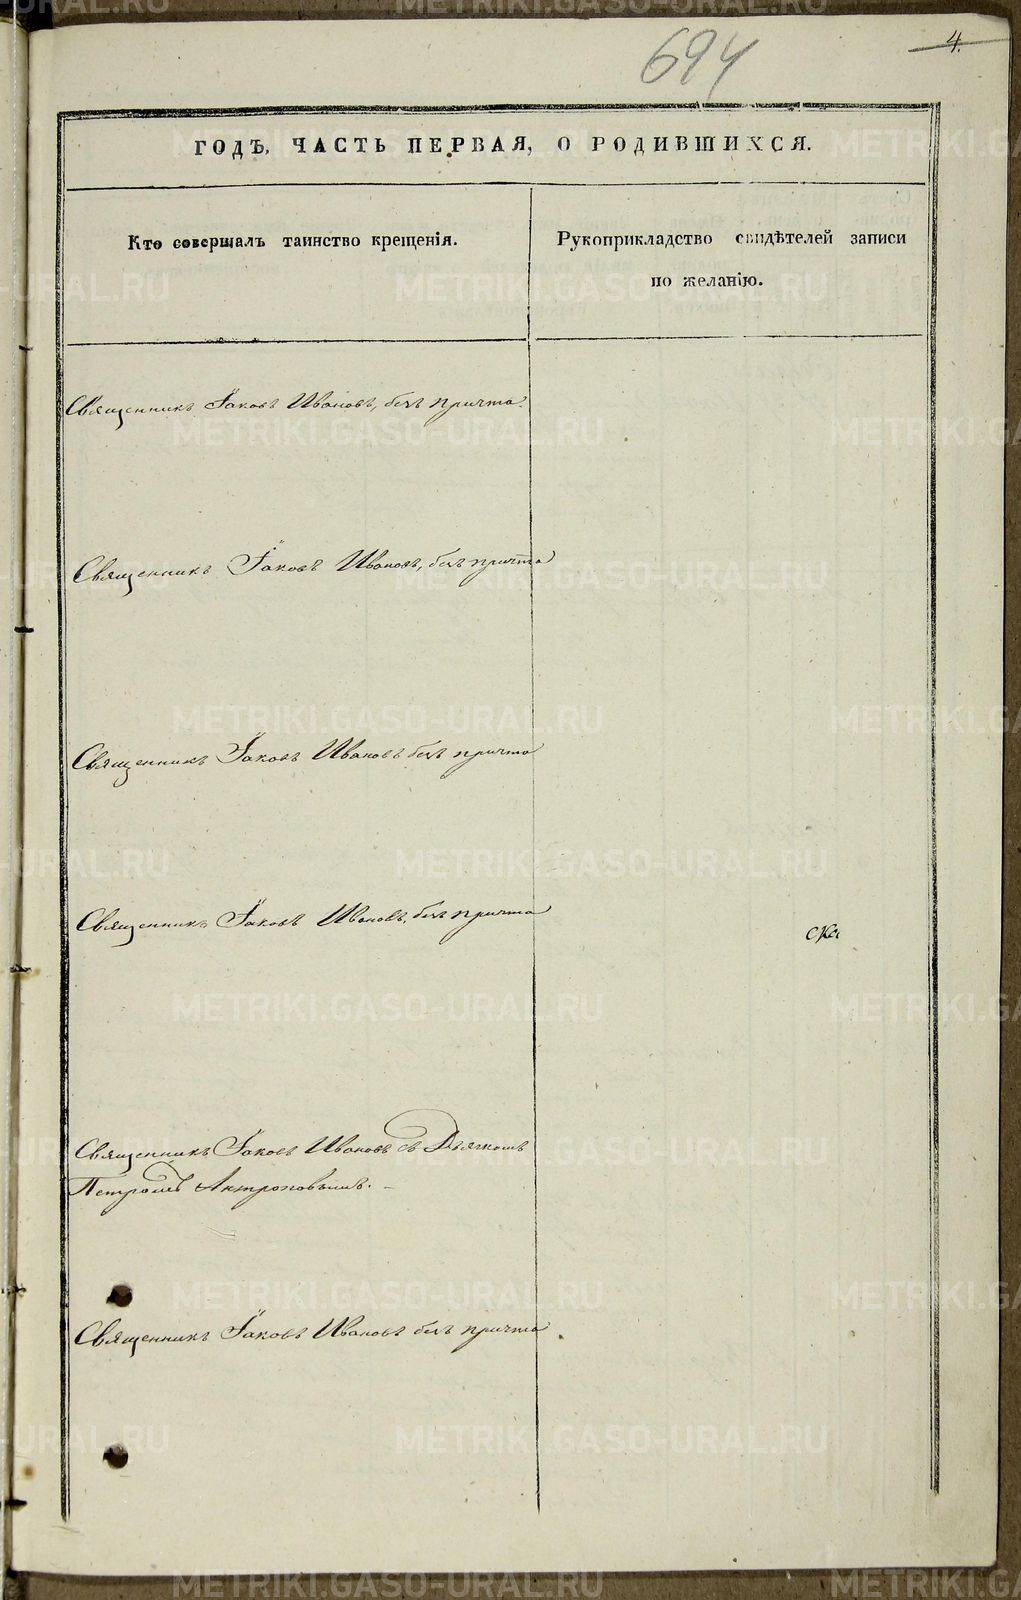 694
4.
ГОДЪ, ЧАСТЬ ПЕРВАЯ, О РОДИВШИХСЯ.
Кто совершалъ таинство крещенія.
Рукоприкладство свидѣтелей записи
по желанію.
Священникъ Іаковъ Ивановъ, безъ причта.
Священникъ Іаковъ Ивановъ, безъ причта
Священникъ Іаковъ Ивановъ безъ причта
Священникъ Іаковъ Ивановъ, безъ причта
Священникъ Іаковъ Ивановъ съ Дьячкомъ
Петромъ Антроповымъ. –
Священникъ Іаковъ Ивановъ безъ причта
METRIKI.GASO-URAL.RU